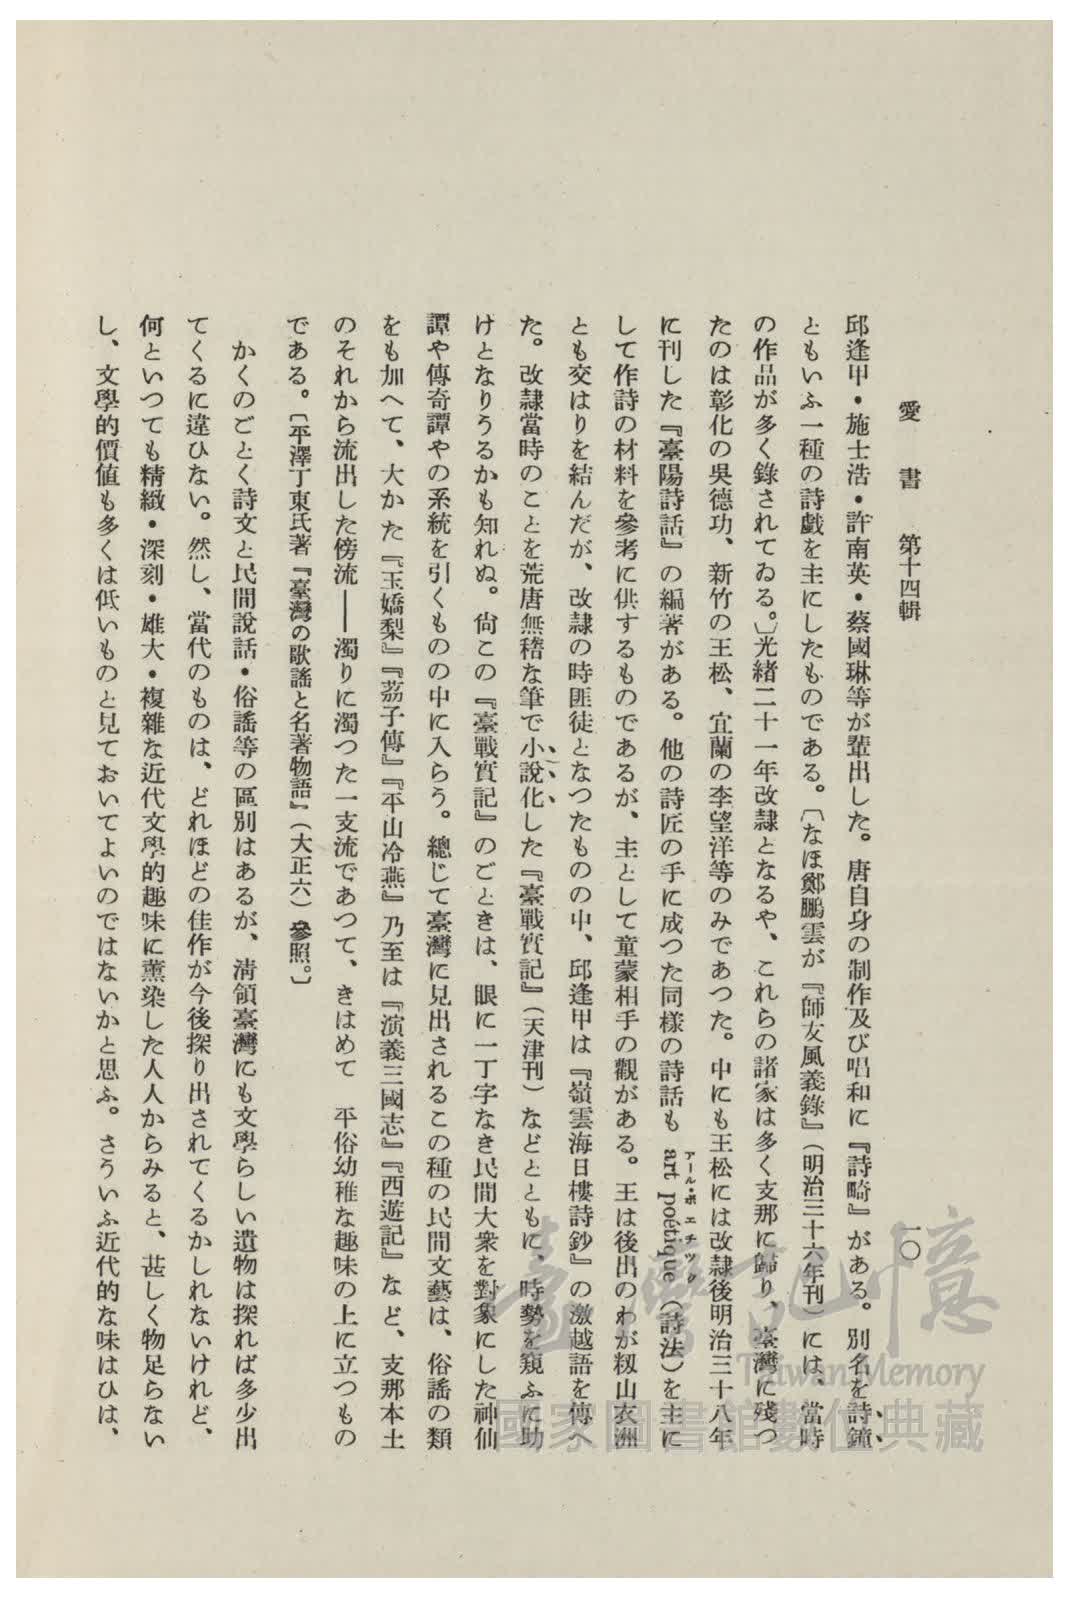 愛書 第十四輯
一〇
邱逢甲・施士浩・許南英・蔡國琳等が輩出した。唐自身の制作及び唱和に『詩畸』がある。別名を詩鐘
ともいふ一種の詩戲を主にしたものである。〔なほ鄭鵬雲が『師友風義錄』（明治三十六年刊）には、當時
の作品が多く錄されてゐる。〕光緒二十一年改隷となるや、これらの諸家は多く支那に歸り、臺灣に殘つ
たのは彰化の吳德功、新竹の王松、宜蘭の李望洋等のみであつた。中にも王松には改隷後明治三十八年
に刊した『臺陽詩話』の編著がある。他の詩匠の手に成つた同樣の詩話も art poétique（詩法）を主に
アール・ポエチック
して作詩の材料を參考に供するものであるが、主として童蒙相手の觀がある。王は後出のわが籾山衣洲
とも交はりを結んだが、改隷の時匪徒となつたものの中、邱逢甲は『嶺雲海日樓詩鈔』の激越語を傳へ
た。改隷當時のことを荒唐無稽な筆で小說化した『臺戰實記』（天津刊）などとともに、時勢を窺ふに助
けとなりうるかも知れぬ。尙この『臺戰實記』のごときは、眼に一丁字なき民間大衆を對象にした神仙
譚や傳奇譚やの系統を引くものの中に入らう。總じて臺灣に見出されるこの種の民間文藝は、俗謠の類
をも加へて、大かた『玉嬌梨』『荔子傳』『平山冷燕』乃至は『演義三國志』『西遊記』など、支那本土
のそれから流出した傍流――濁りに濁つた一支流であつて、きはめて 平俗幼稚な趣味の上に立つもの
である。〔平澤丁東氏著『臺灣の歌謠と名著物語』（大正六）參照。〕
かくのごとく詩文と民間說話・俗謠等の區別はあるが、淸領臺灣にも文學らしい遺物は探れば多少出
てくるに違ひない。然し、當代のものは、どれほどの佳作が今後探り出されてくるかしれないけれど、
何といつても精緻・深刻・雄大・複雜な近代文學的趣味に薰染した人人からみると、甚しく物足らない
し、文學的價値も多くは低いものと見ておいてよいのではないかと思ふ。さういふ近代的な味はひは、
臺灣記憶
Taiwan Memory
國家圖書館數位典藏